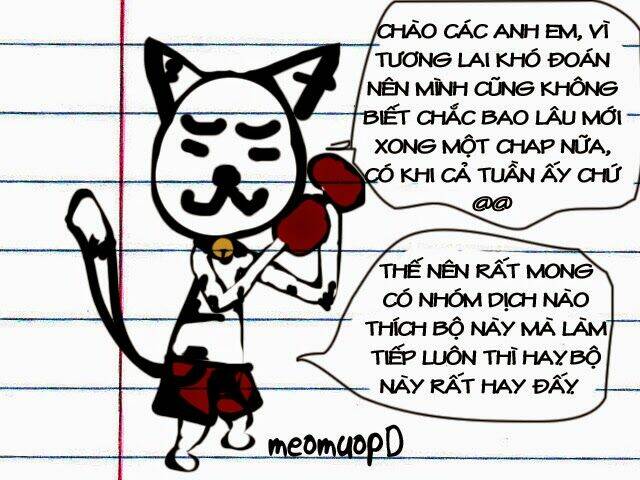 CHÀO CÁC ANH EM, VÌ
TƯƠNG LAI KHÓ ĐOÁN
NÊN MÌNH CŨNG KHÔNG
BIẾT CHẮC BAO LÂU MỚI
XONG MỘT CHAP NỮA,
CÓ KHI CẢ TUẦN ẤY CHỨ
@@
THẾ NÊN RẤT MONG
CÓ NHÓM DỊCH NÀO
THÍCH BỘ NÀY MÀ LÀM
TIẾP LUÔN THÌ HAY. BỘ
NÀY RẤT HAY ĐẤY.
meomuopD